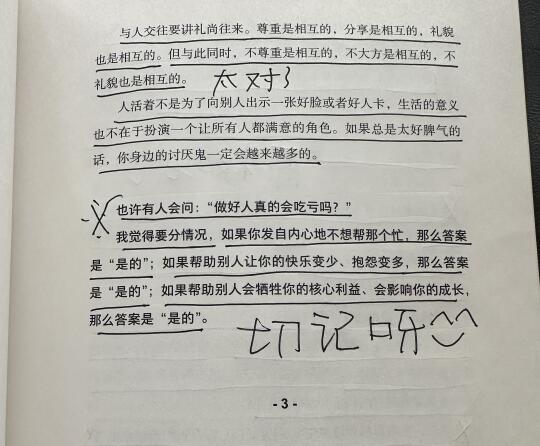 与人交往要讲礼尚往来。尊重是相互的，分享是相互的，礼貌
也是相互的。但与此同时，不尊重是相互的，不大方是相互的，不
礼貌也是相互的。 太对了
人活着不是为了向别人出示一张好脸或者好人卡，生活的意义
也不在于扮演一个让所有人都满意的角色。如果总是太好脾气的
话，你身边的讨厌鬼一定会越来越多的。
也许有人会问：“做好人真的会吃亏吗？”
我觉得要分情况，如果你发自内心地不想帮那个忙，那么答案
是“是的”；如果帮助别人让你的快乐变少、抱怨变多，那么答案
是“是的”；如果帮助别人会牺牲你的核心利益、会影响你的成长，
那么答案是“是的”。
切记呀
- 3 -